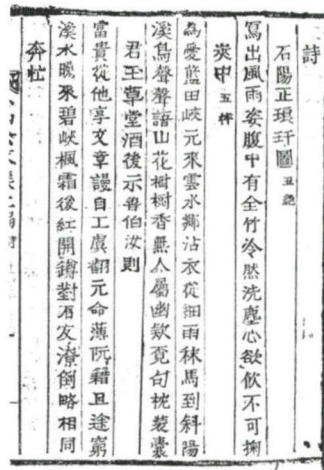 詩
石陽正琅玕圖 五絶
寫出風雨姿腹中有全竹泠然洗塵心欲飲不可掬
峽中 五律
為愛藍田峽元來雲水鄉沾衣從細雨秣馬到斜陽
溪鳥聲聲語山花樹樹香無人屬幽欵覓句枕裝囊
君王草堂酒後示魯伯汝則
富貴從他享文章謾自工虞翻元命薄阮籍且途窮
溪水晚來碧峽楓霜後紅開罇對石友潦倒略相同
奔忙